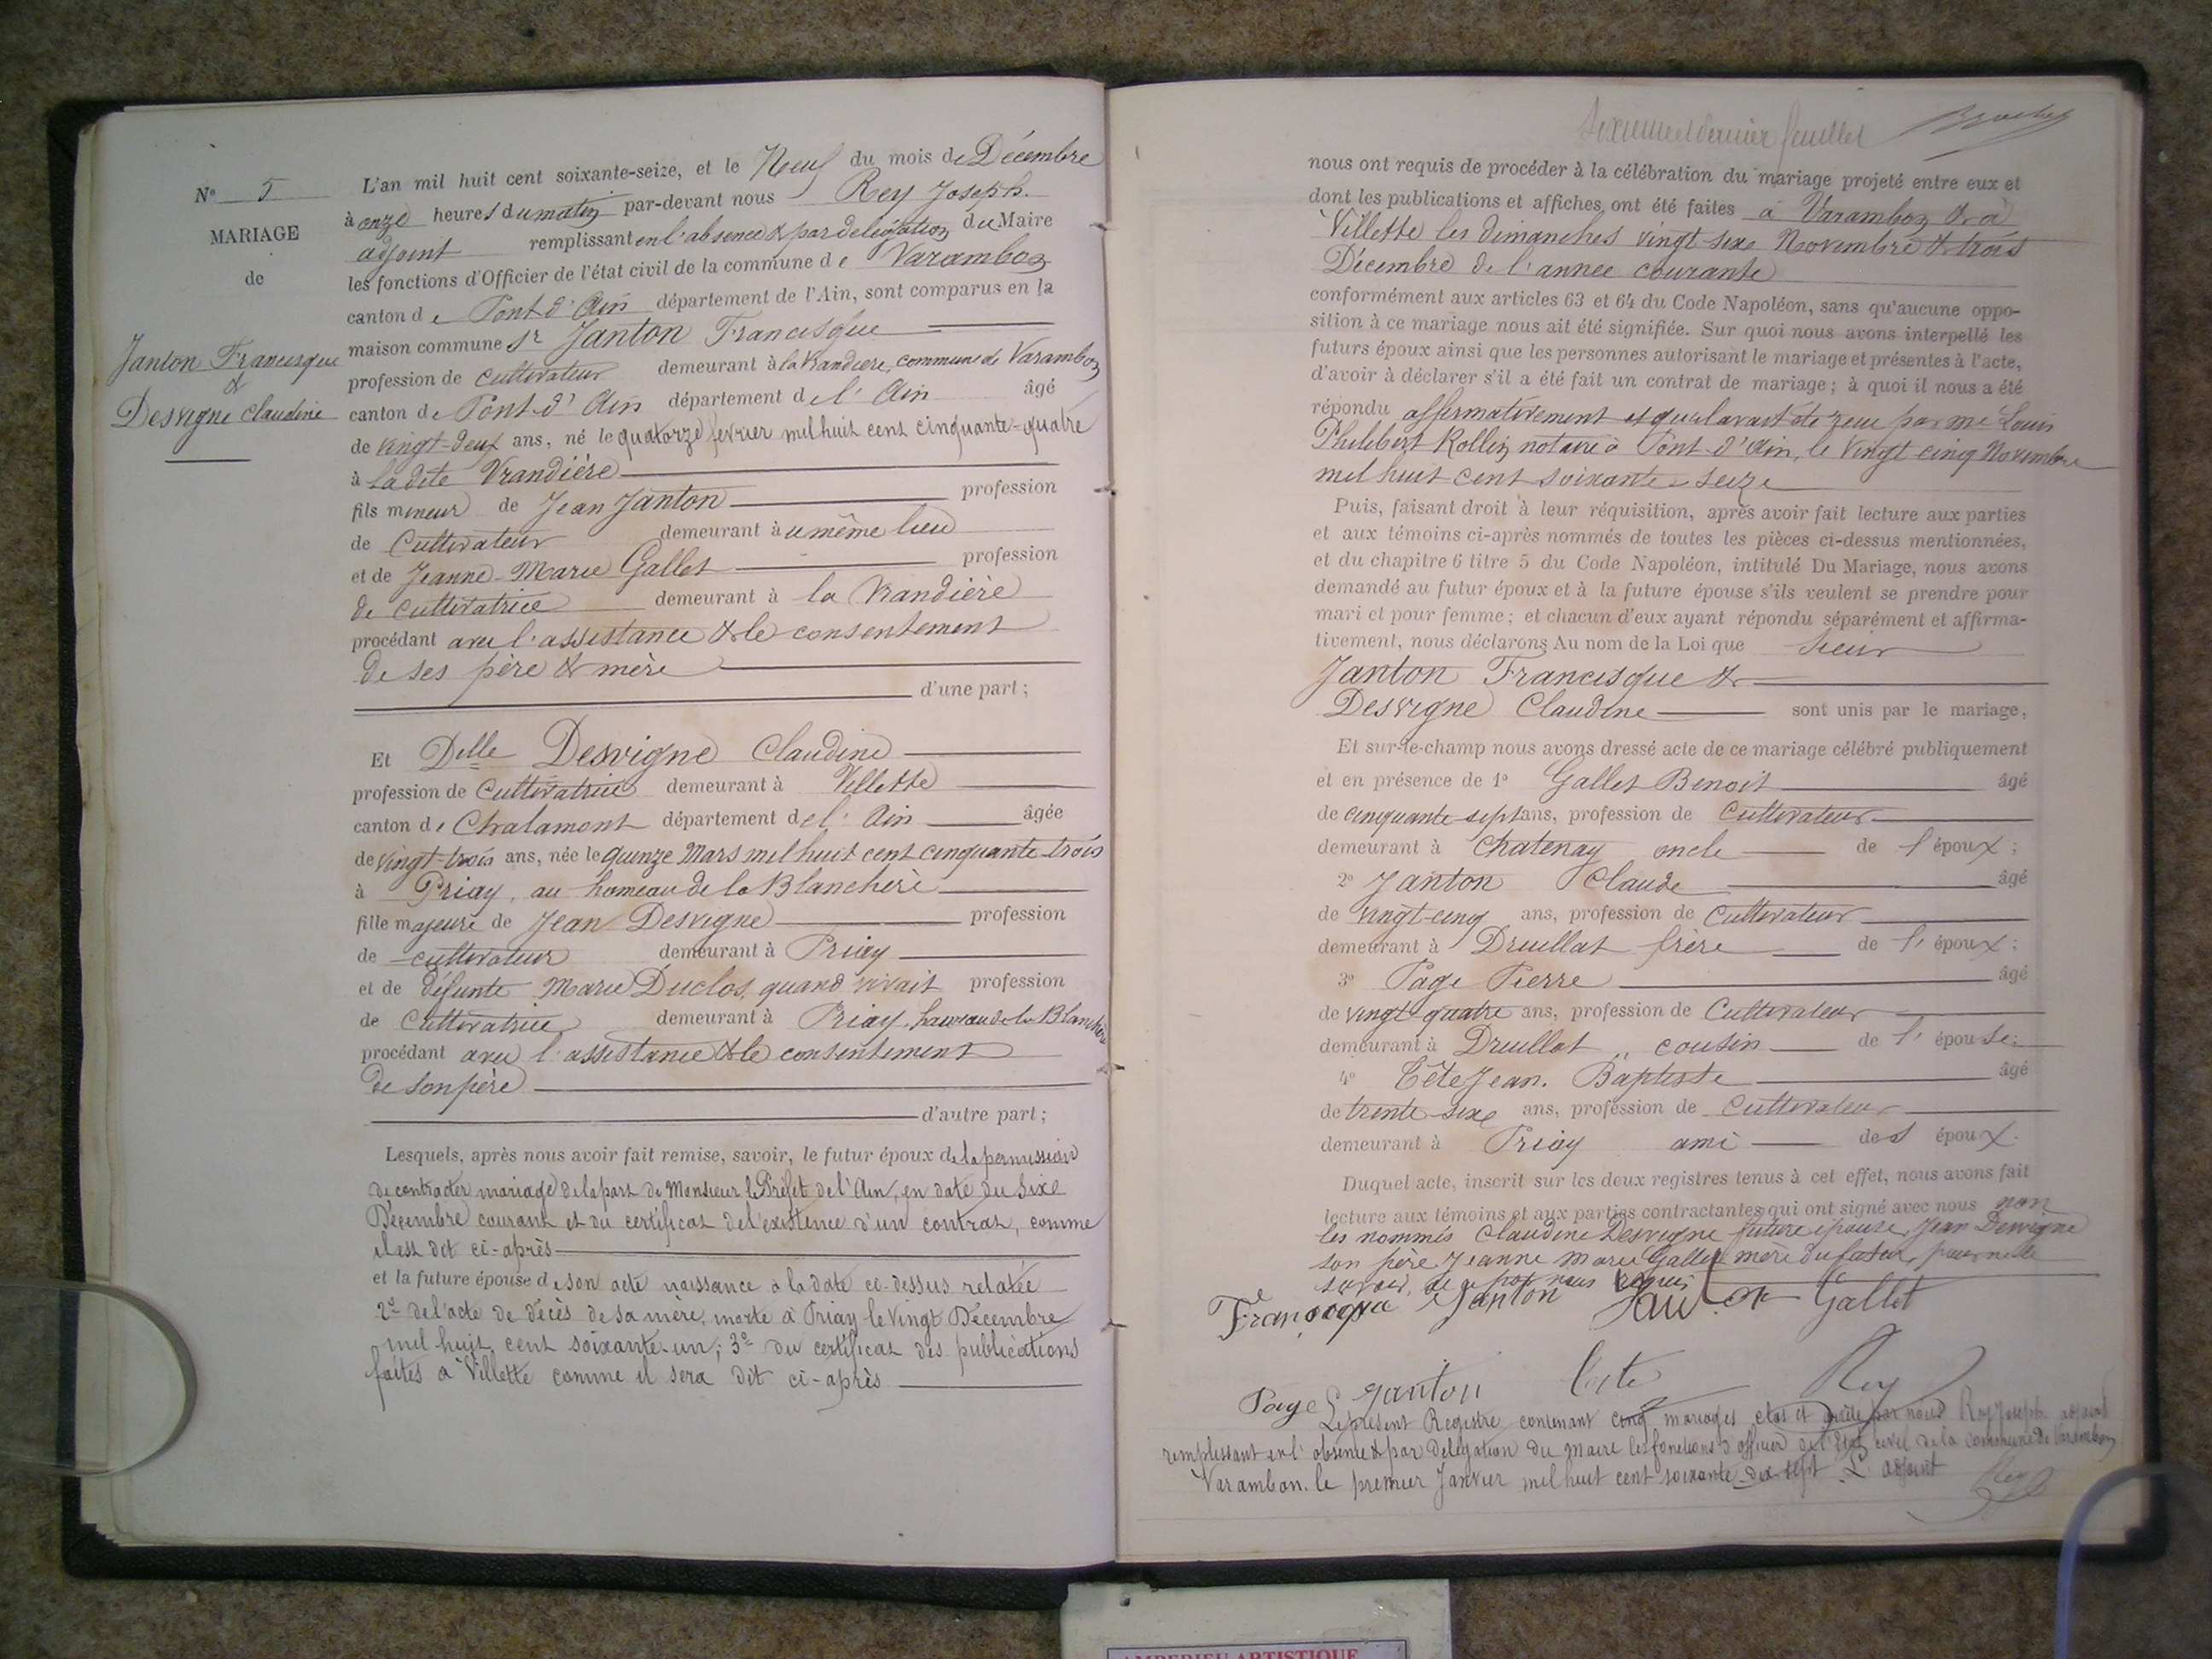 N° 5
MARIAGE
de
Janton Francisque
&
Desvigne Claudine
L'an mil huit cent soixante-seize, et le Neuf du mois de Décembre
à onze heures du matin par-devant nous Rey Joseph.
adjoint remplissant en l'absence & par délégation du Maire
les fonctions d'Officier de l'état civil de la commune de Varambon
canton de Pont d'Ain département de l'Ain, sont comparus en la
maison commune Sr Janton Francisque
profession de cultivateur demeurant à la Vrandière, commune de Varambon
canton de Pont-d'Ain département de l'Ain âgé
de vingt-deux ans, né le quatorze fevrier mil huit cent cinquante-quatre
à ladite Vrandière
fils mineur de Jean Janton profession
de Cultivateur demeurant à u même lieu
et de Jeanne-Marie Gallet profession
de cultivatrice demeurant à la Vrandière
procédant avec l'assistance & le consentement
de ses père & mère
d'une part;
Et Delle Desvigne Claudine
profession de Cultivatrice demeurant à Villette
canton de Chalamont département de l'Ain âgée
de vingt-trois ans, née le quinze Mars mil huit cent cinquante-trois
à Priay, au hameau de la Blanchère
fille majeure de Jean Desvigne profession
de cultivateur demeurant à Priay
et de défunte Marie Duclos, quand vivait profession
de Cultivatrice demeurant à Priay, hameau de la Blanchère
procédant avec l'assistance & le consentement
de son père
d'autre part;
Lesquels, après nous avoir fait remise, savoir, le futur époux de la permission
de contracter mariage de la part de Monsieur le Préfet de l'Ain, en date du Sixe
Décembre courant et du certificat de l'existence d'un contrat, comme
il est dit ci-après
et la future épouse de son acte naissance à la date ci-dessus relatée
2° de l'acte de décès de sa mère, morte à Priay le vingt Décembre
mil huit cent soixante-un; 3° du certificat des publications
faites à Villette comme il sera dit ci-après
Sixième et dernier feuillet
nous ont requis de procéder à la célébration du mariage projeté entre eux et
dont les publications et affiches ont été faites à Varambon & à
Villette les dimanches vingt-sixe Novembre & trois
Décembre de l'année courante
conformément aux articles 63 et 64 du Code Napoléon, sans qu'aucune oppo-
sition à ce mariage nous ait été signifiée. Sur quoi nous avons interpellé les
futurs époux ainsi que les personnes autorisant le mariage et présentes à l'acte,
d'avoir à déclarer s'il a été fait un contrat de mariage; à quoi il nous a été
répondu affirmativement et qu'il avait été reçu par me Louis
Philibert Rollin, notaire à Pont-d'Ain, le vingt-cinq Novembre
mil huit cent soixante-seize
Puis, faisant droit à leur réquisition, après avoir fait lecture aux parties
et aux témoins ci-après nommés de toutes les pièces ci-dessus mentionnées,
et du chapitre 6 titre 5 du Code Napoléon, intitulé Du Mariage, nous avons
demandé au futur époux et à la future épouse s'ils veulent se prendre pour
mari et pour femme; et chacun d'eux ayant répondu séparément et affirma-
tivement, nous déclarons Au nom de la Loi que Sieur
Janton Francisque &
Desvigne Claudine sont unis par le mariage,
Et sur-le-champ nous avons dressé acte de ce mariage célébré publiquement
et en présence de 1° Gallet Benoit âgé
de cinquante-sept ans, profession de Cultivateur
demeurant à Chatenay oncle de l'époux;
2° Janton Claude âgé
de vingt-cinq ans, profession de Cultivateur
demeurant à Druillat frère de l'époux;
3° Page Pierre âgé
de vingt-quatre ans, profession de Cultivateur
demeurant à Druillat cousin de l'épouse;
4° Tête Jean-Baptiste âgé
de trente-sixe ans, profession de Cultivateur
demeurant à Priay ami des époux.
Duquel acte, inscrit sur les deux registres tenus à cet effet, nous avons fait
lecture aux témoins et aux parties contractantes qui ont signé avec nous non
les nommés Claudine Desvigne future épouse, Jean Desvigne
son père, Jeanne Marie Gallet mère du futur, pour ne le
savoir, de ce par nous requis
Francisque Janton Gallet
Page Janton Tête Rey
Le présent Registre contenant cinq mariages clos et arrêté par nous Rey Joseph adjoint
remplissant en l'absence & par délégation du Maire les fonctions d'officier de l'Etat civil de la commune de Varambon
Varambon, le premier Janvier mil huit cent soixante-dix-sept. L'adjoint Rey